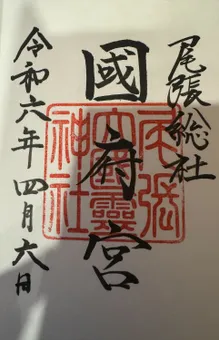 尾張総社
國府宮
令和六年四月六日
尾張大國霊神社